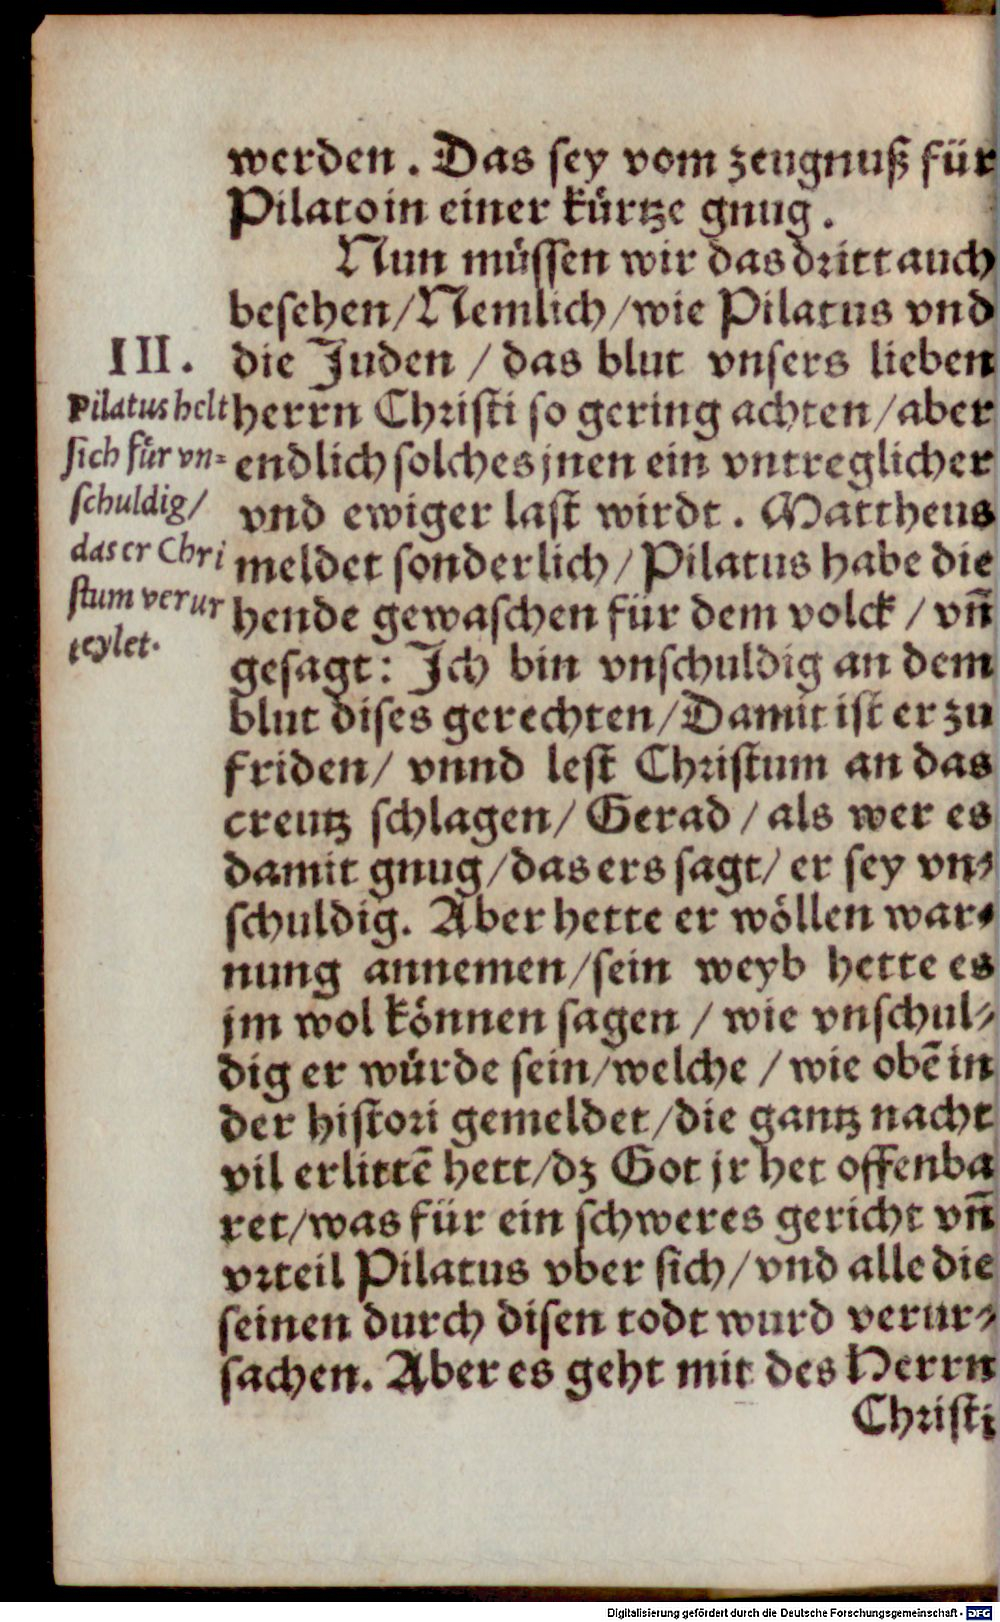 werden. Das sey vom zeugnuß für
Pilato in einer kürtze gnug.
Nun müssen wir das dritt auch
besehen/Nemlich/wie Pilatus vnd
die Juden / das blut vnsers lieben
herrn Christi so gering achten/aber
endlich solches jnen ein vntreglicher
vnd ewiger last wirdt. Mattheus
meldet sonderlich/Pilatus habe die
hende gewaschen für dem volck / vn̄
gesagt: Ich bin vnschuldig an dem
blut dises gerechten/Damit ist er zu
friden/ vnnd lest Christum an das
creutz schlagen/ Gerad / als wer es
damit gnug/das ers sagt/ er sey vn-
schuldig. Aber hette er wöllen war-
nung annemen/sein weyb hette es
jm wol können sagen / wie vnschul-
dig er würde sein/welche / wie obē in
der histori gemeldet/die gantz nacht
vil erlittē hett/dz Got jr het offenba
ret/was für ein schweres gericht vn̄
vrteil Pilatus vber sich/vnd alle die
seinen durch disen todt wurd verur-
sachen. Aber es geht mit des Herrn
Christi
III.
Pilatus helt
sich für vn-
schuldig/
das er Chri
stum verur
teylet.
Digitalisierung gefördert durch die Deutsche Forschungsgemeinschaft - DFG